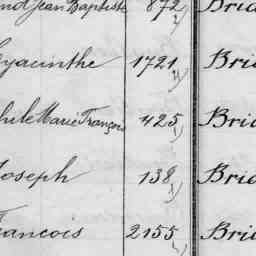 Jean Baptiste 872 Brid
Hyacinthe 1721 Brid
Marie François 425 Brid
Joseph 138 Brid
François 2155 Brid